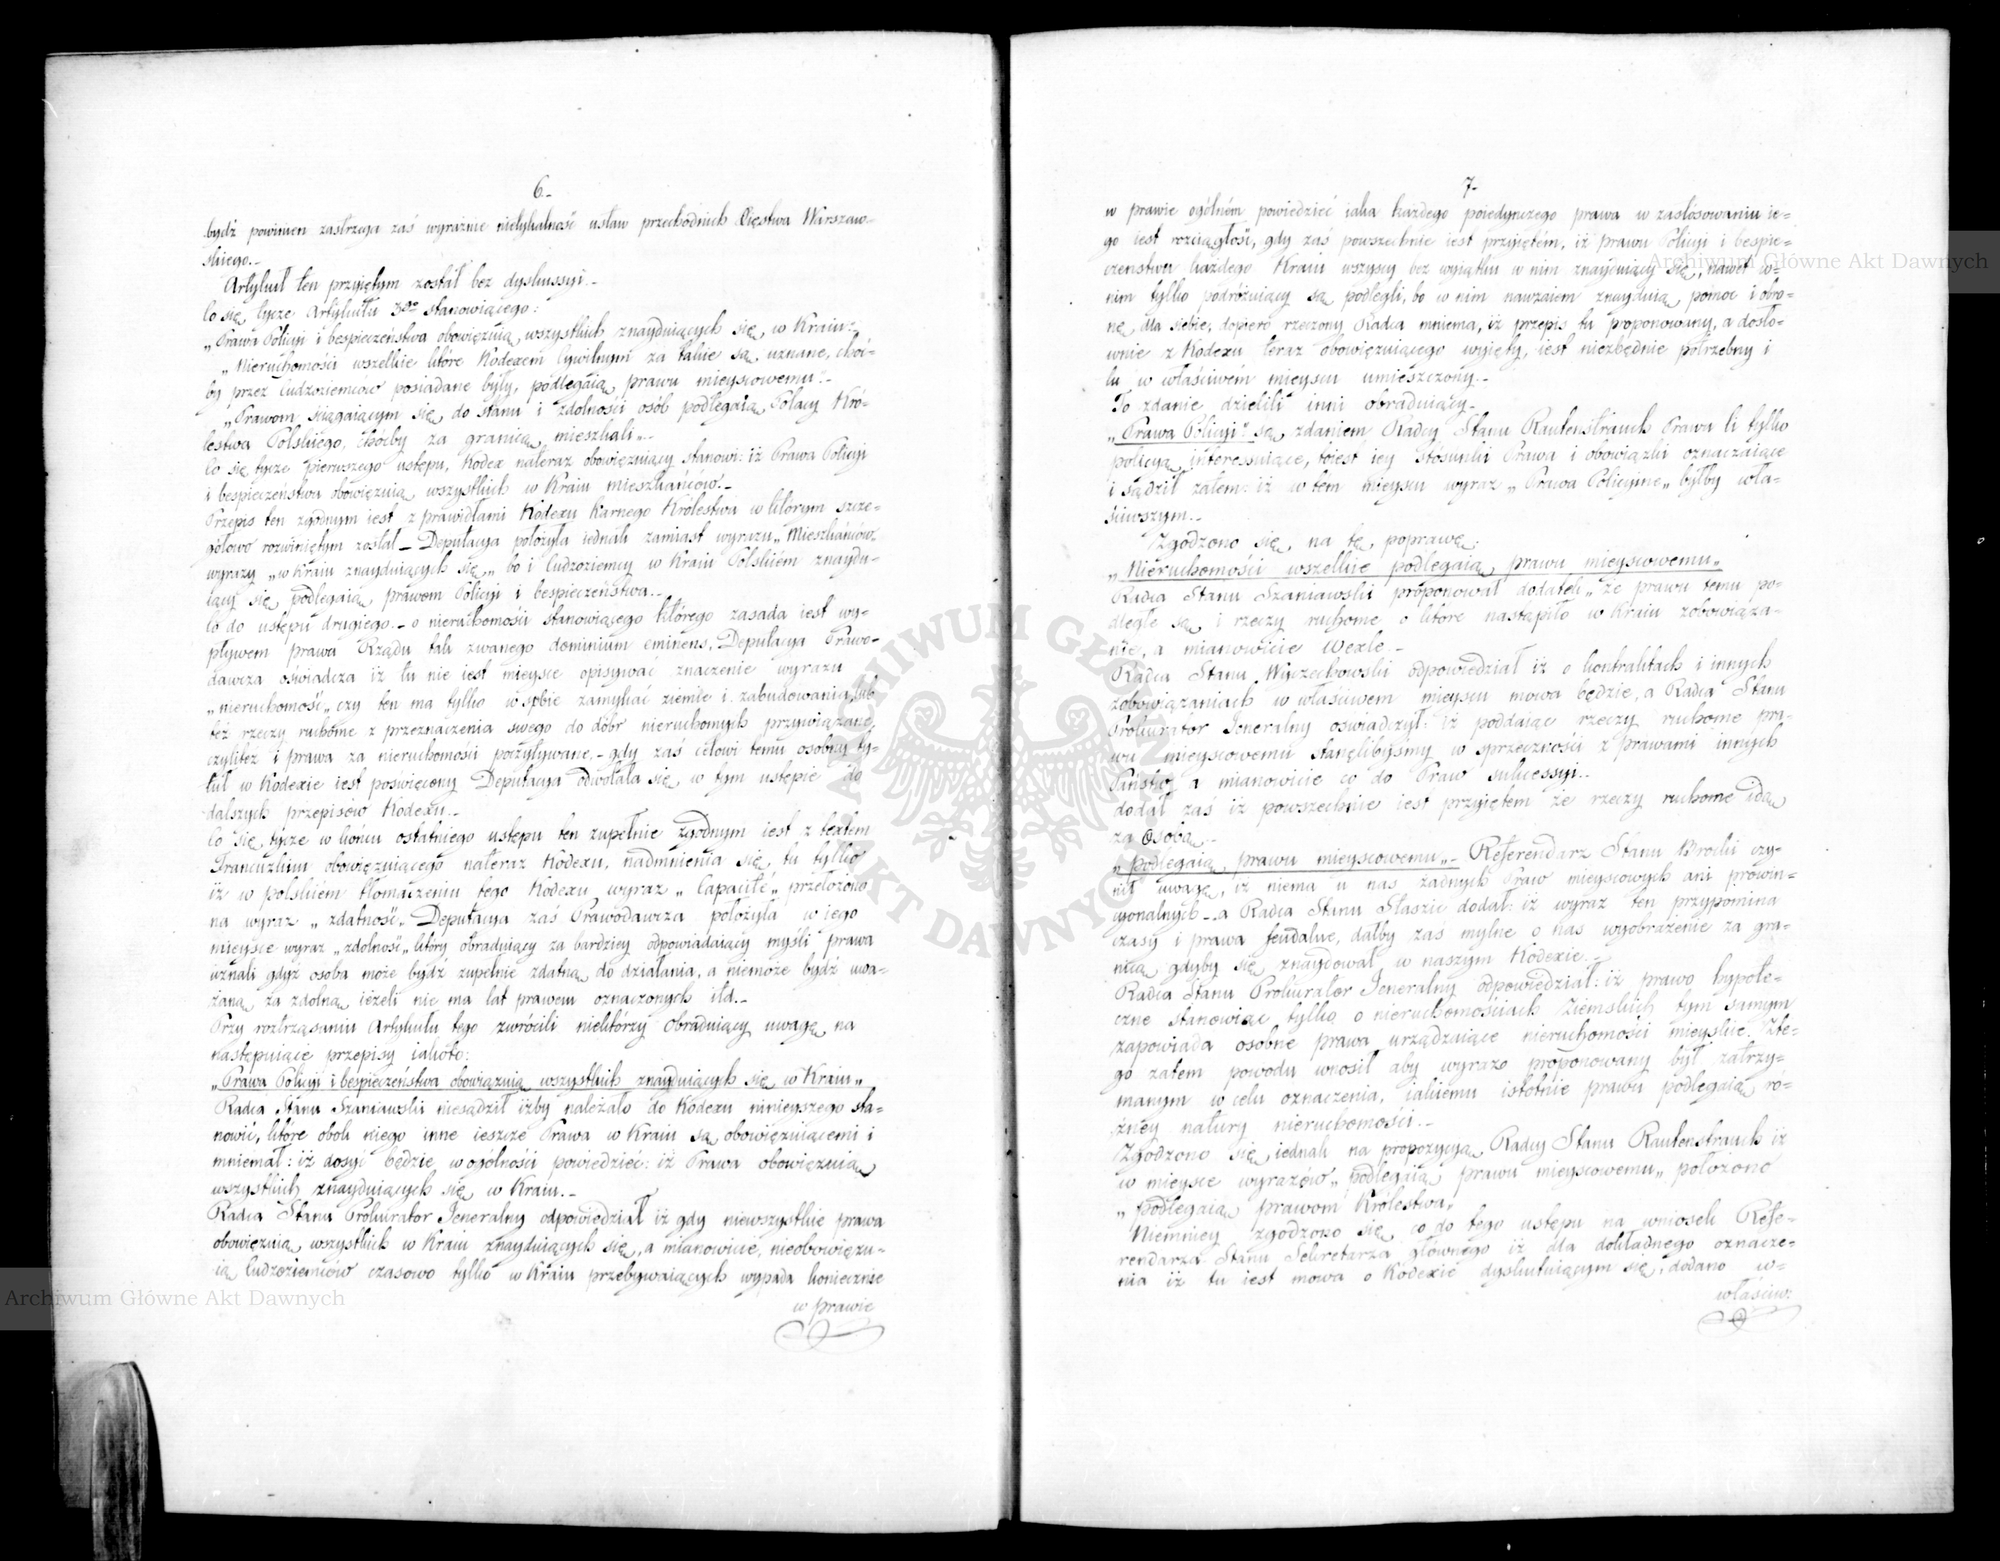 6.-
bydź powinien zastrzega zaś wyraźnie nietykalność ustaw przechodnich Xięstwa Warszaw-
skiego.-
Artykuł ten przyiętym został bez dyskussyi.-
Co się tycze Artykułu 3go stanowiącego:
„Prawa Policyi i bespieczeństwa obowięzuią wszystkich znayduiących się w Kraiu„
„Nieruchomości wszelkie które Kodexem Cywilnym za takie są uznane, choć-
by przez Cudzoziemców posiadane były, podlegaią prawu mieyscowemu„.-
„Prawom ściągaiącym się do stanu i zdolności osób podlegaią Polacy Kró-
lestwa Polskiego, choćby za granicą mieszkali„.-
Co się tycze pierwszego ustępu, Kodex nateraz obowięzuiący stanowi: iż Prawa Policyi
i bespieczeństwa obowięzuią wszystkich w Kraiu mieszkańców.-
Przepis ten zgodnym iest z prawidłami Kodexu Karnego Królestwa w którym szcze-
gółowo rozwiniętym został._ Deputacya położyła iednak zamiast wyrazu „Mieszkańców„
wyrazy „w Kraiu znayduiących się„ bo i Cudzoziemcy w Kraiu Polskiém znaydu-
iący się podlegaią prawom Policyi i bespieczeństwa.-
Co do ustępu drugiego._ o nieruchomości stanowiącego którego zasada iest wy-
pływem prawa Rządu tak zwanego dominium eminens, Deputacya Prawo-
dawcza oświadcza iż tu nie iest mieysce opisywać znaczenie wyrazu
„nieruchomość„ czy ten ma tylko w sobie zamykać ziemie i zabudowania, lub
też rzeczy ruchome z przeznaczenia swego do dóbr nieruchomych przywiązane,
czyliteż i prawa za nieruchomości poczytywane._ gdy zaś celowi temu osobny ty-
tuł w Kodexie iest poświęcony Deputacya odwołała się w tym ustępie do
dalszych przepisów Kodexu.-
Co się tycze w końcu ostatniego ustępu ten zupełnie zgodnym iest z textem
Francuzkim obowięzuiącego nateraz Kodexu, nadmnienia się, tu tylko
iż w polskiem tłomaczeniu tego Kodexu wyraz „Capacité„ przełożono
na wyraz „zdatność„ Deputacya zaś Prawodawcza położyła w iego
mieysce wyraz „zdolność„ który obraduiący za bardziey odpowiadaiący myśli prawa
uznali gdyż osoba może bydź zupełnie zdatną do działania, a niemoże bydź uwa-
żaną za zdolną ieżeli nie ma lat prawem oznaczonych itd.-
Przy roztrząsaniu Artykułu tego zwrócili niektórzy obraduiący uwagę na
następuiące przepisy iakoto:
„Prawa Policyi i bespieczeństwa obowiązuią wszystkich znayduiących się w Kraiu„
Radca Stanu Szaniawski niesądził iżby należało do Kodexu ninieyszego sta-
nowić, które obok niego inne ieszcze Prawa w Kraiu są obowięzuiącemi i
mniemał: iż dosyć będzie w ogólności powiedzieć: iż Prawa obowięzuią
wszystkich znayduiących się w Kraiu.-
Radca Stanu Prokurator Jeneralny odpowiedział iż gdy niewszystkie prawa
obowięzuią wszystkich w Kraiu znayduiących się, a mianowicie, nieobowięzu-
ią Cudzoziemców czasowo tylko w Kraiu przebywaiących wypada koniecznie
w prawie
7-
w prawie ogólném powiedzieć iaka każdego poiedynczego prawa w zastósowaniu ie-
go iest rozciągłość, gdy zaś powszechnie iest przyiętém, iż prawu Policyi i bespie-
czeństwu każdego Kraiu wszyscy bez wyiątku w nim znayduiący się, nawet w-
nim tylko podróżuiący są podlegli, bo w nim nawzaiem znayduią pomoc i obro-
nę dla siebie, dopiero rzeczony Radca mniema, iż przepis tu proponowany, a dosło-
wnie z Kodexu teraz obowięzuiącego wyięty, iest niezbędnie potrzebny i
tu w właściwém mieyscu umieszczony.-
To zdanie dzielili inni obraduiący.-
„Prawa Policyi„ są zdaniem Radcy Stanu Rautenstrauch Prawa li tylko
policyą interessuiące, toiest iey Stósunki Prawa i obowiązki oznaczaiące
i sądził zatem: iż w tem mieyscu wyraz „Prawa Policyine„ byłby wła-
ściwszym.-
Zgodzono się na tę poprawę.
„Nieruchomości wszelkie podlegaią prawu mieyscowemu„
Radca Stanu Szaniawski proponował dodatek „że prawu temu po-
dległe są i rzeczy ruchome o które nastąpiło w Kraiu zobowiąza-
nie, a mianowicie Wexle.-
Radca Stanu Wyczechowski odpowiedział iż o kontraktach i innych
zobowiązaniach w właściwem mieyscu mowa będzie, a Radca Stanu
Prokurator Jeneralny oświadczył: iż poddaiąc rzeczy ruchome pra-
wu mieyscowemu stanęlibyśmy w sprzeczności z prawami innych
Państw, a mianowicie co do Praw sukcessyi.-
dodał zaś iż powszechnie iest przyiętem że rzeczy ruchome idą
za Osobą.-
„podlegaią prawu mieyscowemu„._ Referendarz Stanu Brocki czy-
nił uwagę, iż niema u nas żadnych Praw mieyscowych ani prowin-
cyonalnych._ a Radca Stanu Staszic dodał: iż wyraz ten przypomina
czasy i prawa feudalne, dałby zaś mylne o nas wyobrażenie za gra-
nicą gdyby się znaydował w naszym Kodexie.-
Radca Stanu Prokurator Jeneralny odpowiedział: iż prawo hypote-
czne stanowiąc tylko o nieruchomościach Ziemskich tym samym
zapowiada osobne prawa urządzaiące nieruchomości mieyskie. Zte-
go zatem powodu wnosił aby wyraz proponowany był zatrzy-
manym w celu oznaczenia, iakiemu istotnie prawu podlegaią ró-
żney natury nieruchomości.-
Zgodzono się iednak na propozycyą Radcy Stanu Rautenstrauch iż
w mieysce wyrazów „podlegaią prawu mieyscowemu„ położono
„podlegaią prawom Królestwa„
Niemniey zgodzono się co do tego ustępu na wniosek Refe-
rendarza Stanu Sekretarza głównego iż dla dokładnego oznacze-
nia iż tu iest mowa o Kodexie dyskutuiącym się, dodano w-
właściw:
Archiwum Główne Akt Dawnych
Archiwum Główne Akt Dawnych
ARCHIWUM GŁÓWNE AKT DAWNYCH